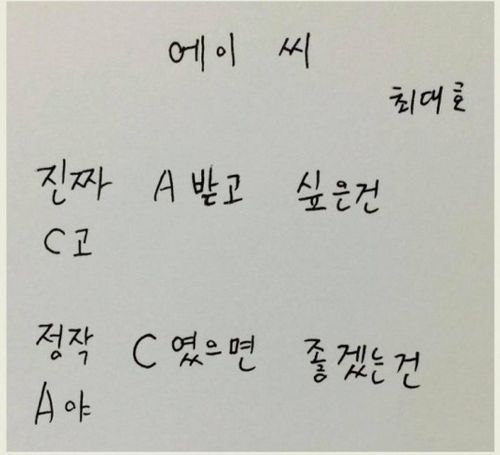 에이 씨
최대호
진짜 A 받고 싶은건
C고
정작 C였으면 좋겠는건
A야